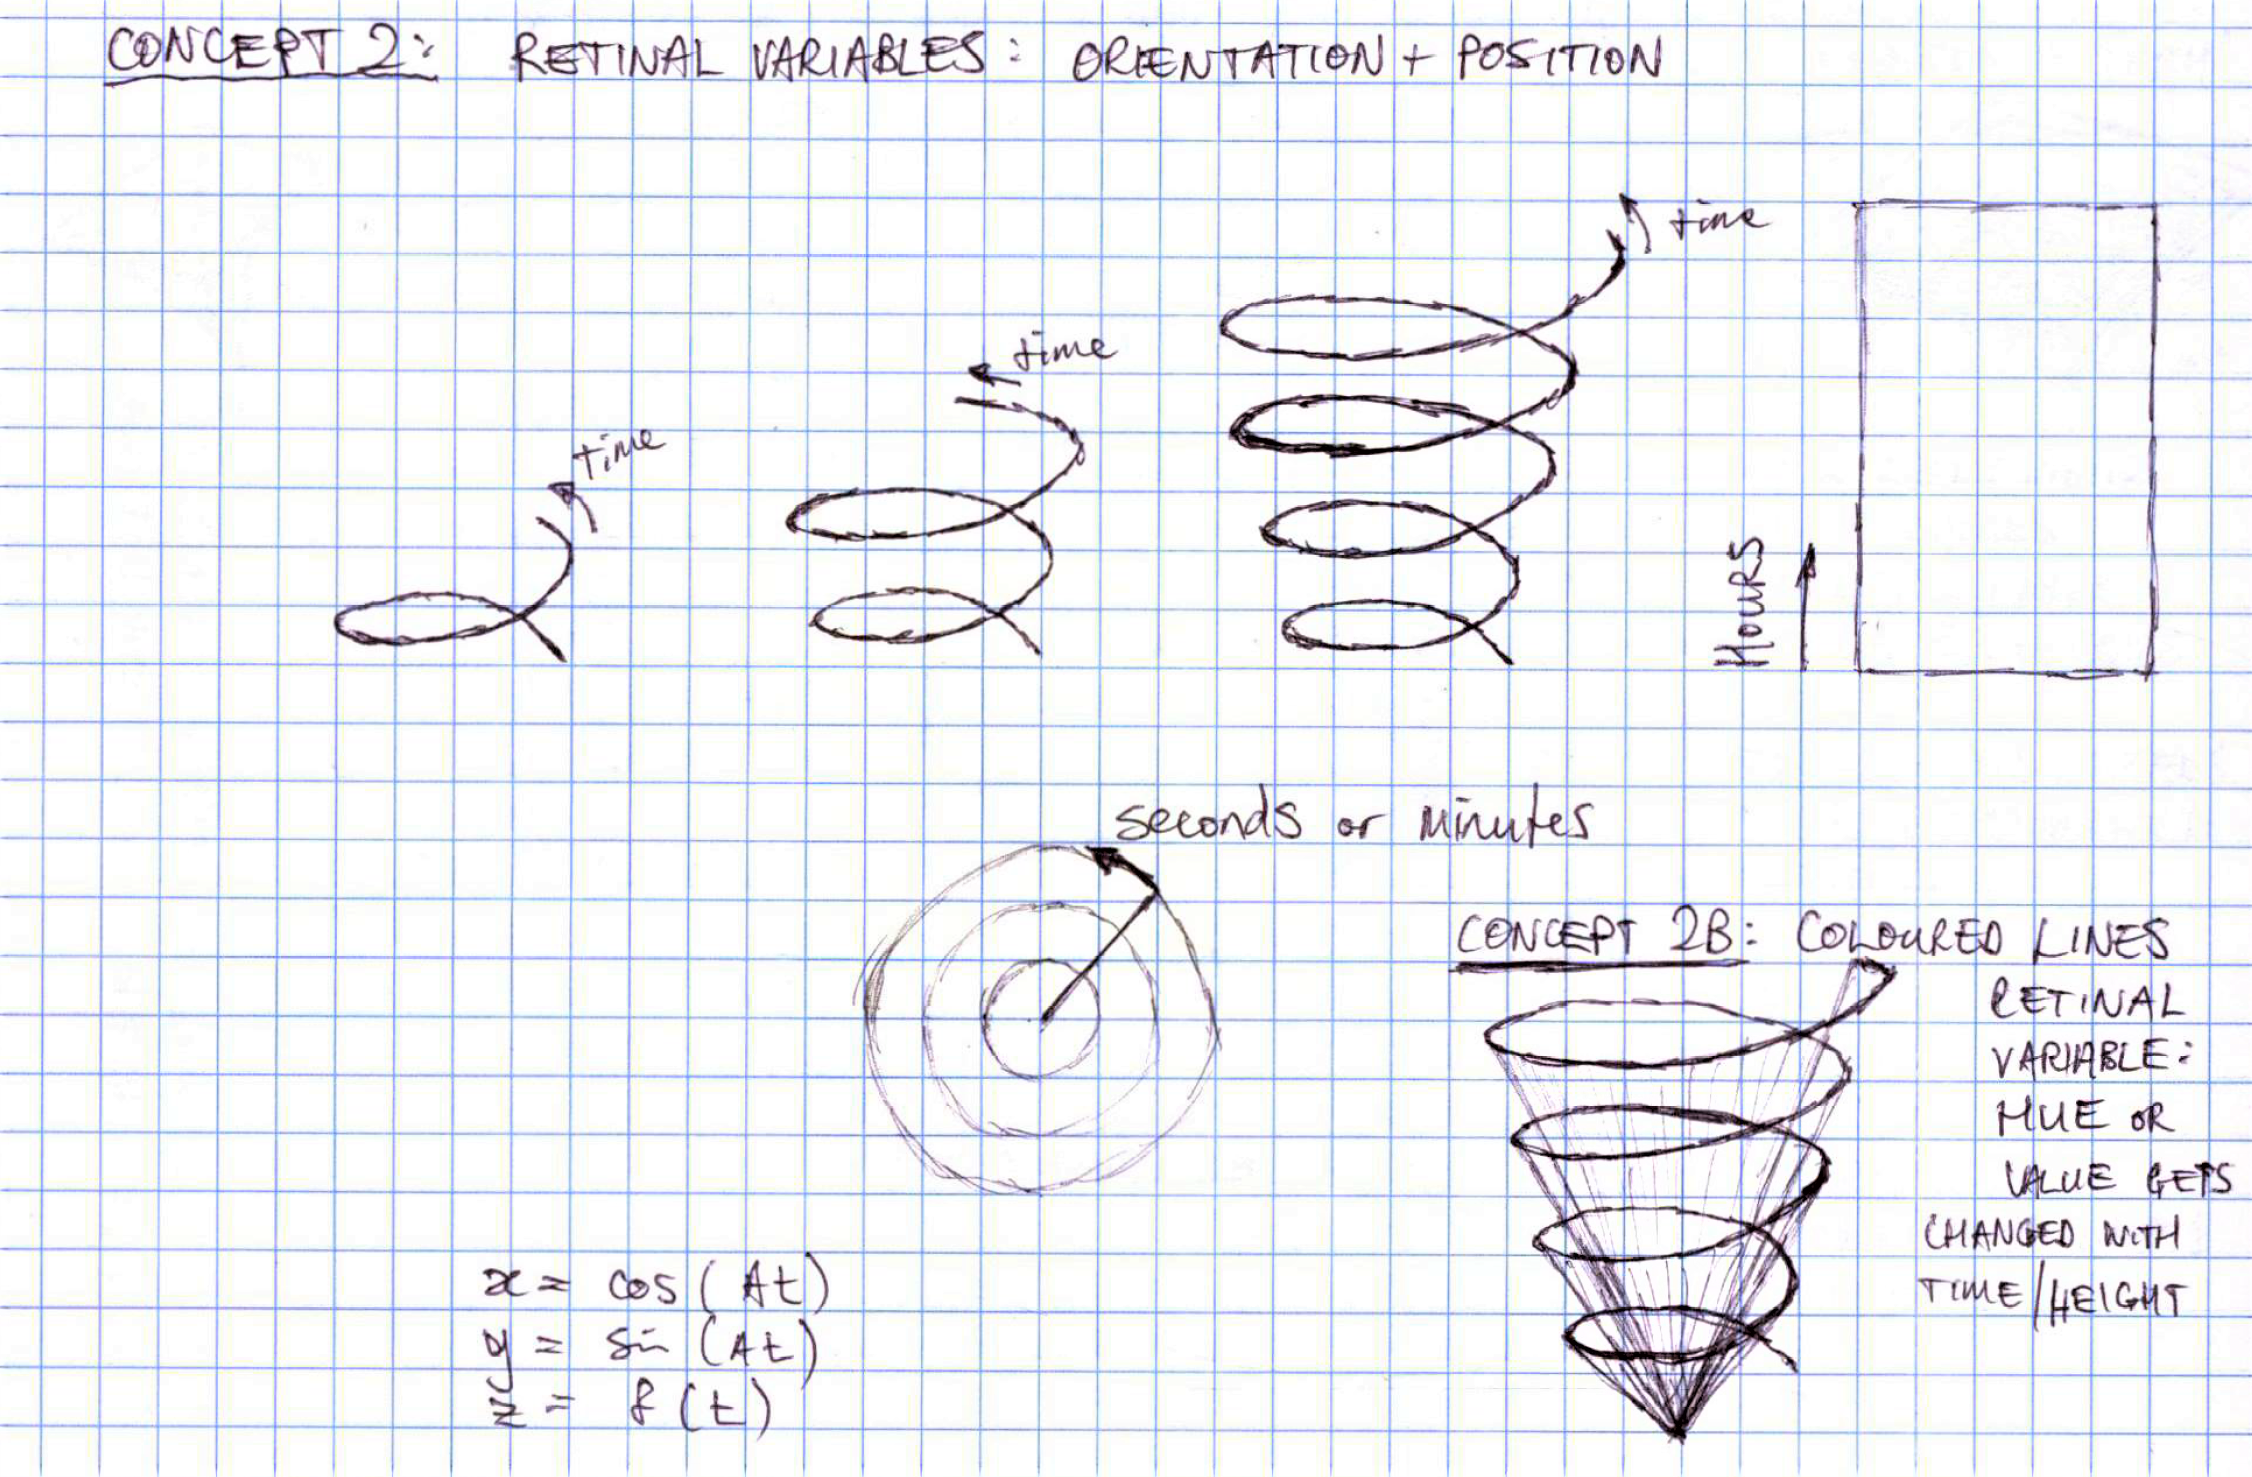 CONCEPT 2: RETINAL VARIABLES: ORIENTATION + POSITION
time
time
time
HOURS
seconds or minutes
CONCEPT 2B: COLOURED LINES
RETINAL
VARIABLE:
HUE OR
VALUE GETS
CHANGED WITH
TIME/HEIGHT
x = cos(At)
y = sin(At)
z = f(t)